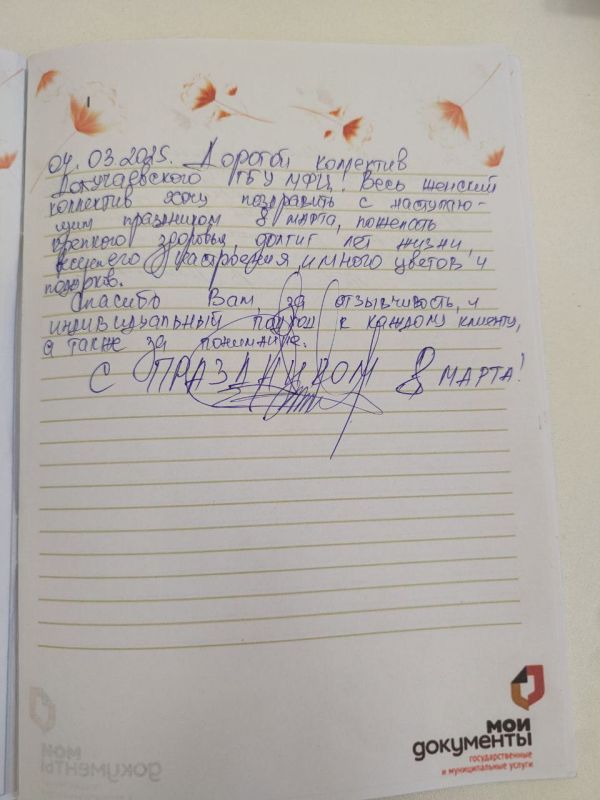 04.03.2025. Дорогой коллектив
Докучаевского ГБУ МФЦ! Весь женский
коллектив хочу поздравить с наступаю-
щим праздником 8 марта, пожелать
крепкого здоровья, долгих лет жизни,
веселого настроения, и много цветов и
подарков.
Спасибо Вам, за отзывчивость, и
индивидуальный подход к каждому клиенту,
а также за понимание.
С ПРАЗДНИКОМ 8 МАРТА!
мои
документы
государственные
и муниципальные услуги